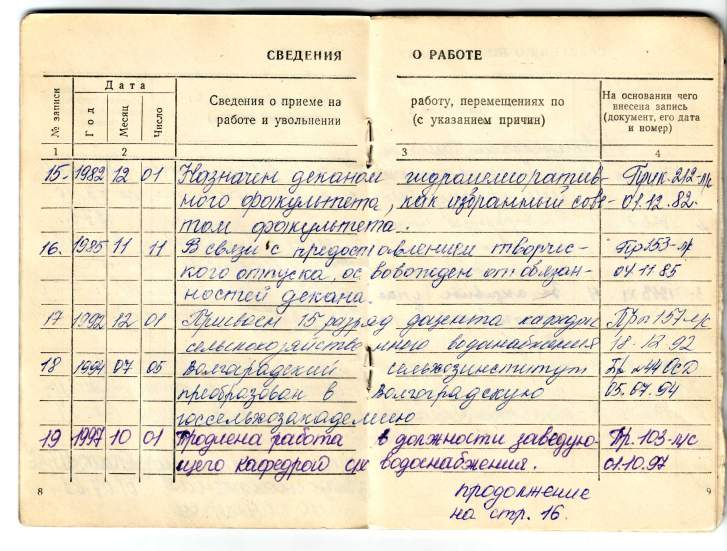 СВЕДЕНИЯ О РАБОТЕ
№ записи
Дата
Год
Месяц
Число
Сведения о приеме на работу, перемещениях по
работе и увольнении (с указанием причин)
На основании чего
внесена запись
(документ, его дата
и номер)
1 2 3 4
15. 1982 12 01 Назначен деканом гидромелиоратив- Прик. 212-л/с
ного факультета, как избранный сове- 01.12.82г.
том факультета.
16. 1985 11 11 В связи с предоставлением творчес- Пр 153-л/с
кого отпуска, освобожден от обязан- 04 11 85
ностей декана.
17 1992 12 01 Присвоен 15 разряд доцента кафедры Пр. 157-л/с
сельскохозяйственного водоснабжения 18.12.92
18 1994 07 05 Волгоградский сельхозинститут Пр. №44 ОсД
преобразован в Волгоградскую 05.07.94
госсельхозакадемию
19 1997 10 01 Продлена работа в должности заведую- Пр. 103-л/с
щего кафедрой с/х водоснабжения. 01.10.97
продолжение
на стр. 16.
8 9